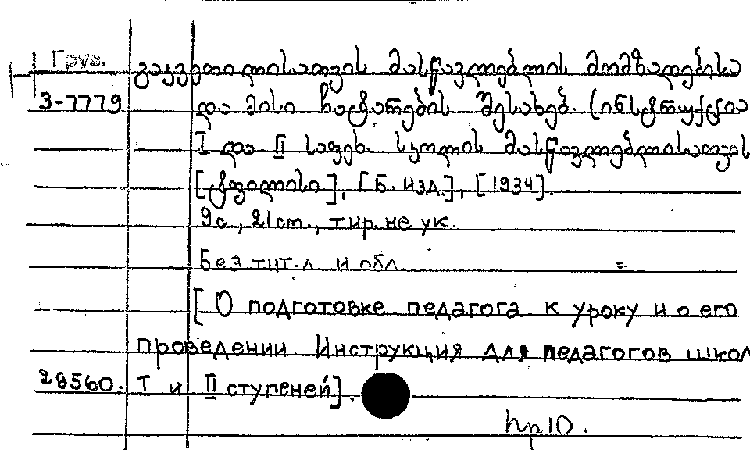 Груз. გაკვეთილისათვის მასწავლებლის მომზადებისა
З-7779 და მისი ჩატარების შესახებ. (ინსტრუქცია
I და II საფეხ. სკოლის მასწავლებლისათვის
[ტფილისი], [Б. изд.], [1934].
9с., 21cm., тир. не ук.
Без тит. л. и обл.
[О подготовке педагога к уроку и о его
проведении Инструкция для педагогов школ
28560. I и II ступеней].